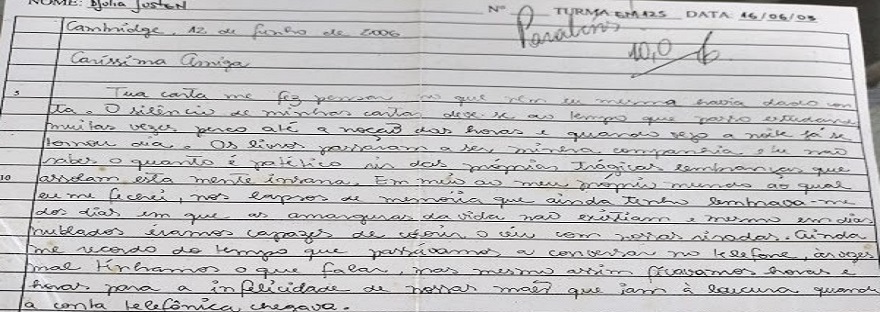 NOME: Djolia Justen Nº TURMA EM125 DATA 16/06/03
Parabéns
10,0
Cambridge, 12 de junho de 2006
Caríssima Amiga
5 Tua carta me fez pensar no que nem eu mesma havia dado con
ta. O silêncio de minhas cartas deve-se ao tempo que passo estudando
muitas vezes perco até a noção das horas e quando vejo a noite já se
tornou dia. Os livros passaram a ser minha companhia e tu não
sabes o quanto é patético rir das próprias trágicas lembranças que
10 assolam esta mente insana. Em meio ao meu próprio mundo ao qual
eu me fechei, nos lapsos de memória que ainda tenho lembrava-me
dos dias em que as amarguras da vida não existiam e mesmo em dias
nublados éramos capazes de colorir o céu com nossas risadas. Ainda
me recordo do tempo que passávamos a conversar no telefone, às vezes
mal tínhamos o que falar, mas mesmo assim ficavamos horas e
horas para a infelicidade de nossas mães que iam à loucura quando
a conta telefônica chegava.